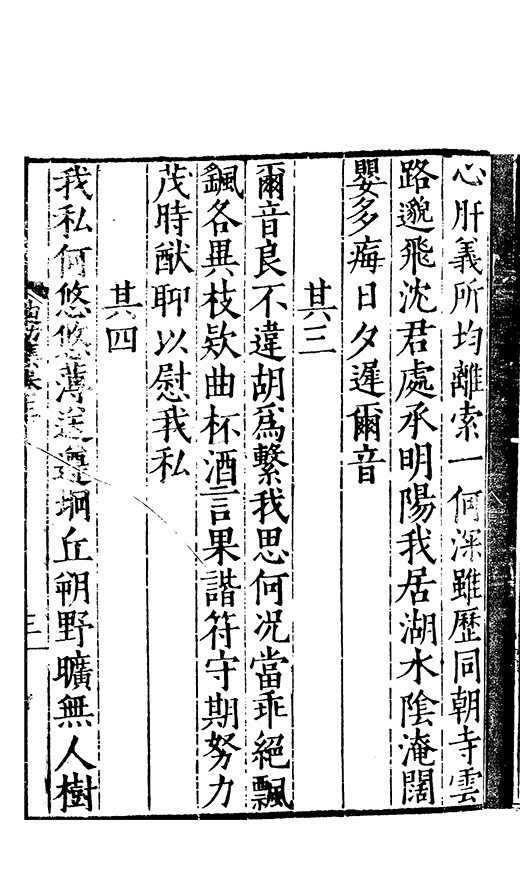 心肝義所均離索一何深雖歷同朝寺雲
路邈飛沈君處承明陽我居湖水陰淹闊
嬰多痗日夕遲爾音
其三
爾音良不違胡爲繫我思何况當乖絕飄
颻各異枝欵曲杯酒言果諧符守期努力
茂時猷聊以慰我私
其四
我私何悠悠薄送遵坰丘朔野曠無人樹